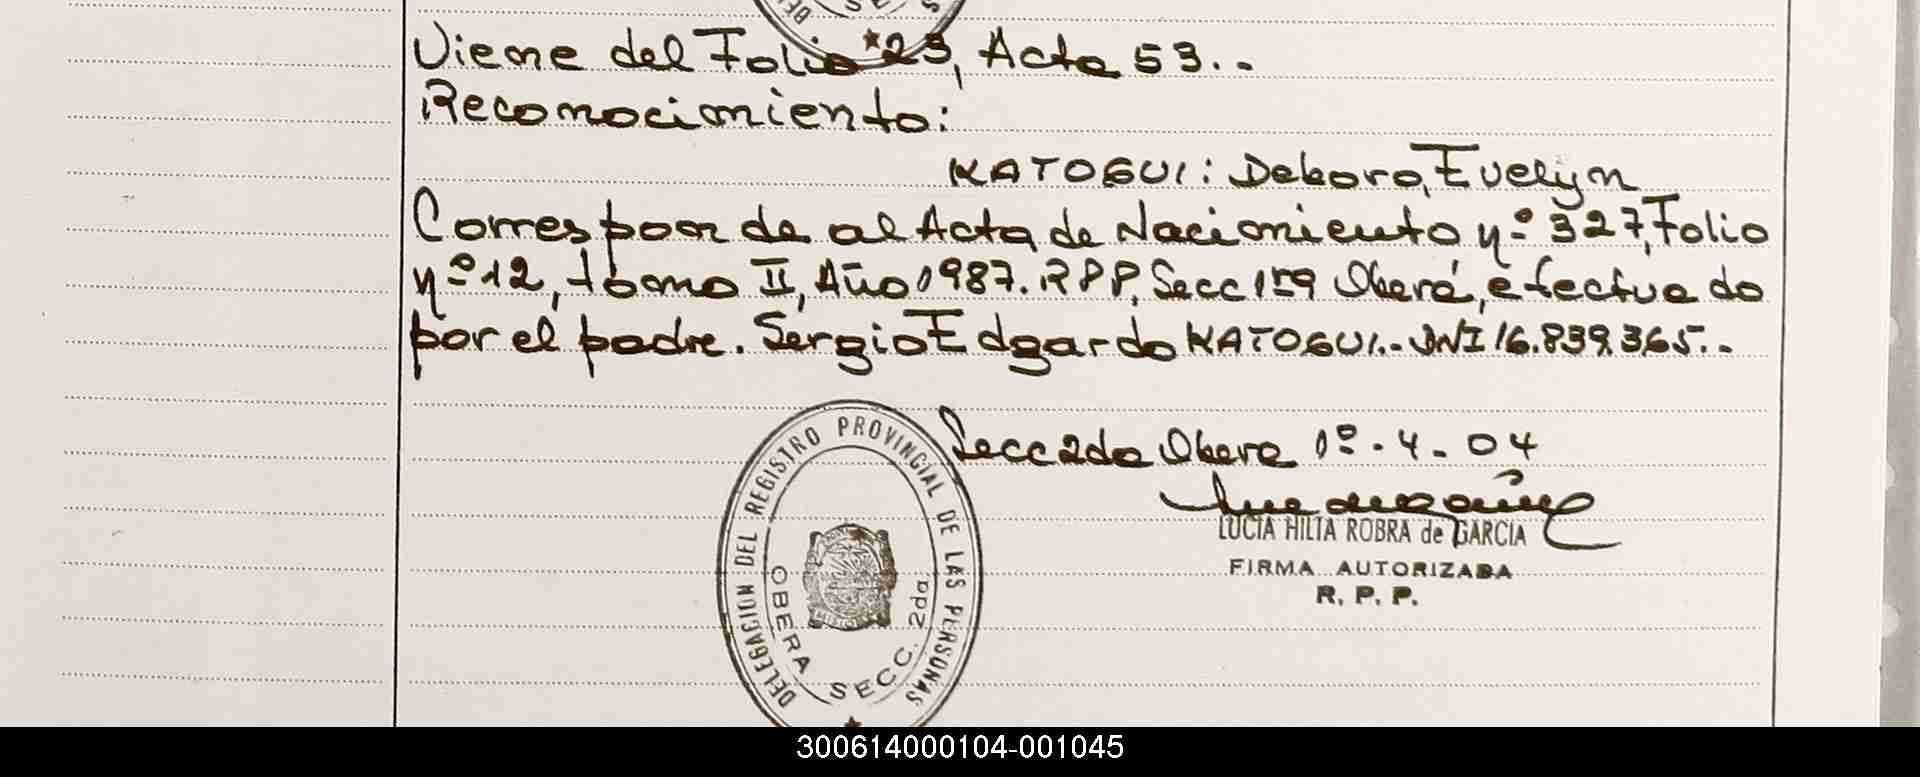 Viene del Folio 23, Acta 53.-
Reconocimiento:
KATOGUI: Debora, Evelyn
Corresponde al Acta de Nacimiento nº 327, Folio
nº 12, tomo II, Año 1987. RPP, Secc 1ra Oberá, efectuado
por el padre. Sergio Edgardo KATOGUI.- DNI 16.839.365.-
Secc 2da Obera 1º.4.04
LUCIA HILTA ROBRA de GARCIA
FIRMA AUTORIZADA
R. P. P.
DELEGACION DEL REGISTRO PROVINCIAL DE LAS PERSONAS
OBERA SECC. 2da
300614000104-001045